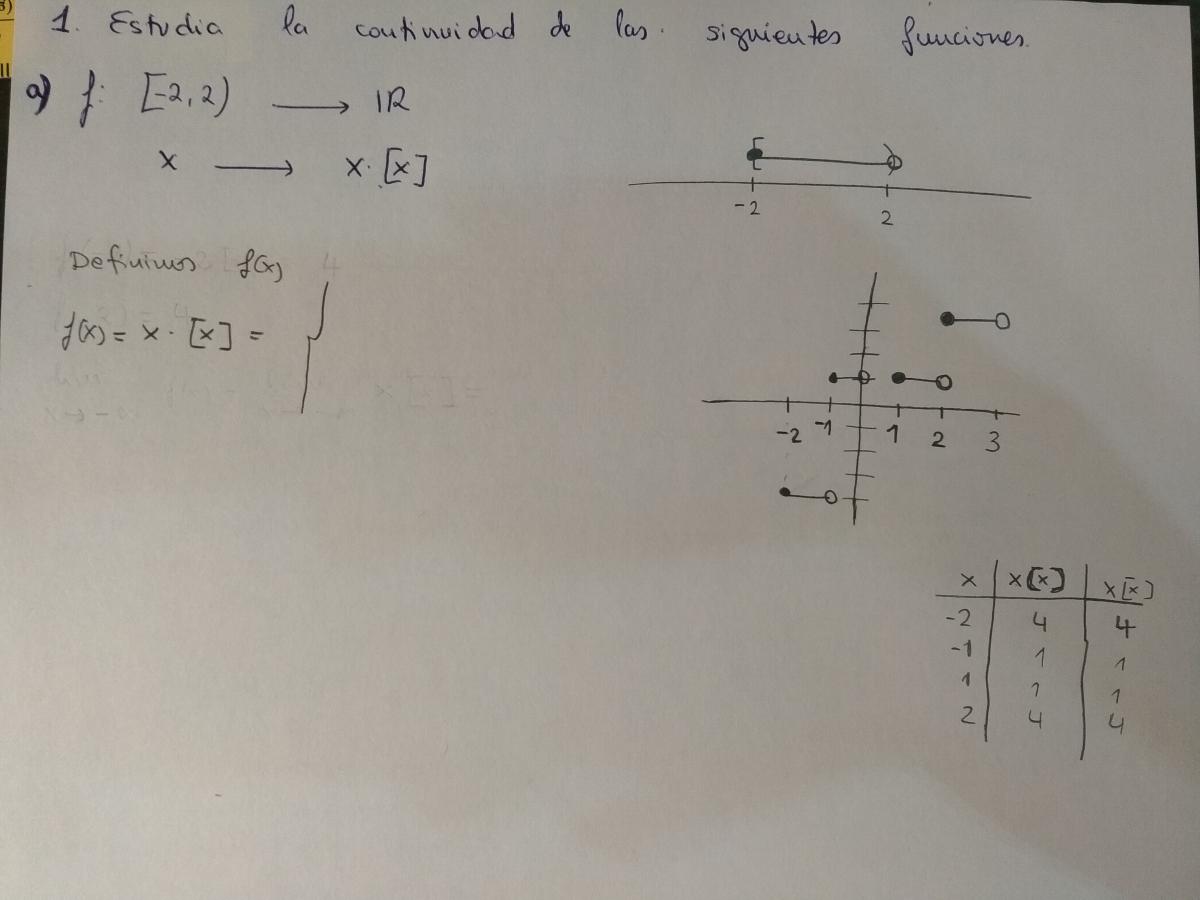 3)
1. Estudia la continuidad de las siguientes funciones.
a) f: [-2, 2) ⟶ IR
x ⟶ x·[x]
-2 2
Definimos f(x)
f(x) = x · [x] =
-2 -1 1 2 3
x x[x] x[x]
-2 4 4
-1 1 1
1 1 1
2 4 4